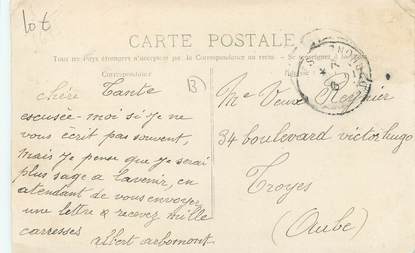 lot
CARTE POSTALE
Tous les Pays étrangers n'acceptent pas la Correspondance au recto. - Se renseigner à la
Correspondance
B
chère Tante
escusez-moi si je ne
vous écrit pas souvent,
mais je pense que je serai
plus sage a lavenir, en
atendant de vous envoyer
une lettre & recevez mille
caresses
albert arbomont
Me Veuve Regnier
34 boulevard victor hugo
Troyes
(Aube)